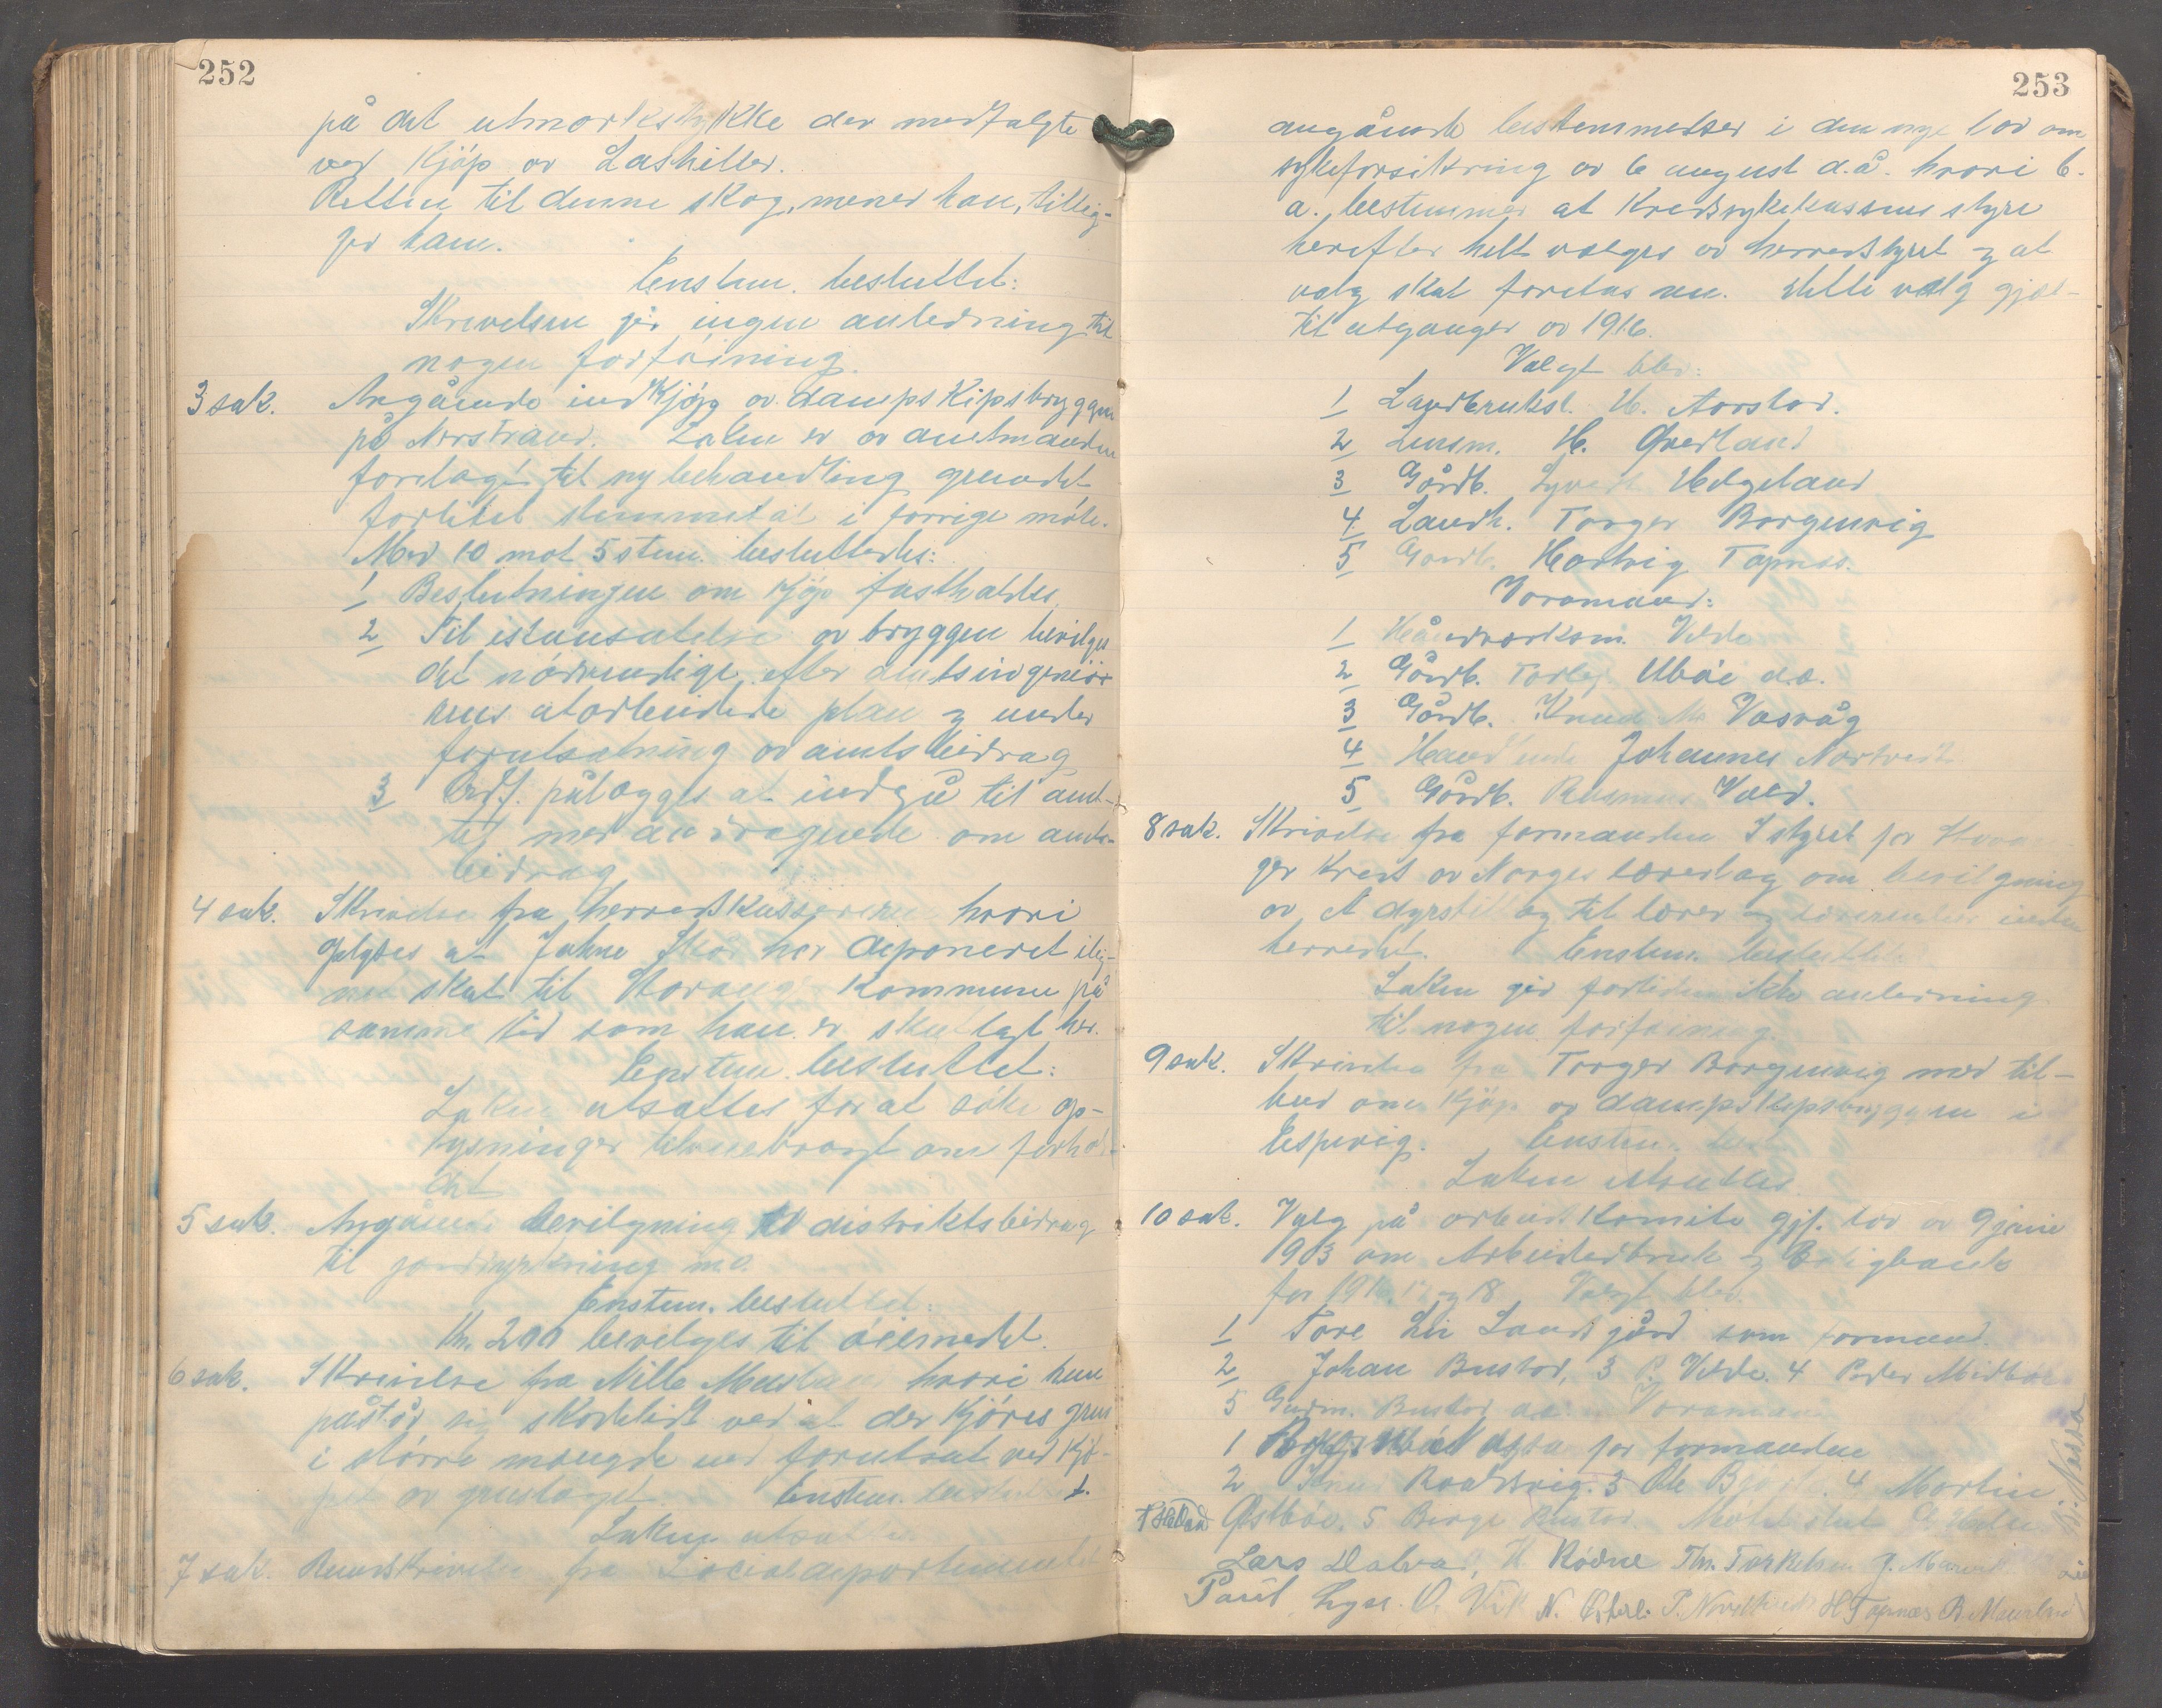 252
på det utmarkstykke der medfulgte
ved Kjöp av Lashiller.
Retten til denne skog, mener han, tillig-
ger ham.
Enstem. besluttet:
Skrivelsen gir ingen anledning til
nogen forföining.
3 sak. Angående indkjöp av dampskipsbryggen
på Nerstrand. Saken er av amtmanden
forelagt til ny behandling grundet
forlitet stemmetal i forrige möte.
Med 10 mot 5 stem. besluttedes:
1 Beslutningen om Kjöp fastholdes.
2 Til istansættelse av bryggen bevilges
det nödvendige efter amtsingeniör
ens utarbeidede plan og under
forutsætning av amtsbidrag
3 Ordf. pålægges at indgå til amt-
tet med andragende om amts-
bidrag
4 sak. Skrivelse fra herredskassereren hvori
oplyses at Johne Skår har deponeret ilig-
net skat til Stavanger Kommune på
samme tid som han er skatlagt her.
Enstem. besluttet:
Saken utsættes for at söke op-
lysninger tilveiebragt om forhol-
det
5 sak. Angående bevilgning til distriktsbidrag
til jorddyrkning m.v.
Enstem. besluttet:
Kr. 200 bevilges til öiemedet.
6 sak. Skrivelse fra Nille hvori hun
påstår sig skadelidt ved at der kjöres grus
i större mængde end forutsat ved kjö-
pet av grustaget. Enstem. besluttet.
Saken utsættes
7 sak. Rundskrivelse fra Socialdepartementet
253
angående bestemmelser i den nye lov om
sykeforsikring av 6 august d.å. hvori b.
a. bestemmes at Kredssykekassens styre
herefter helt vælges av herredstyret og at
valg skal foretas nu. Dette valg gjæl-
til utgangen av 1916.
Valgt blev:
1 Landbruksl. H. Aarstad.
2 Lensm. H. Qverland
3 Gårdb. Syvert Helgeland
4 Landh. Torger Borgenvig
5 Gaardb. Hartvig Tapnæs.
Varamænd:
1 Håndværksm. Velde
2 Gårdb. Torleif Uböe d.æ.
3 Gårdb. Knud M. Vasvåg
4 Johannes Nærtvedt
5 Gårdb. Rasmus Vaad.
8 sak. Skrivelse fra formanden I styret for
ger kreds av Norges lærerlag om bevilgning
av et dyrtillæg til lærer og lærerinder inden
herredet. Enstem. besluttet
Saken gir fortiden ikke anledning
til nogen forföining.
9 sak. Skrivelse fra Torger Borgenvig med til-
bud om Kjöp av dampskipsbryggen i
Espevig. Enstem. bes.
Saken utsættes
10 sak. Valg på arbeidskomite gjf. lov av 9 juni
1903 om Arbeiderbruk og Boligbank
for 1916, 17 og 18. Valgt blev.
1 Tore Lii Landsgård som formand.
2 Johan Bustad, 3 P. Velde. 4 Peder Midtböe
5 Gudm. Bustad Varamænd
1 for formanden
2 Knud Raadsvig. 3 Ole 4 Martin
Östböe. 5 Börge Bustad Mötet slut
Lars Dalva, H. Rödne Th. Torkelsen J.
Paul Lyse. O. Vik N. Østerli P. H Tapnæs B Mæland
B. Næssa